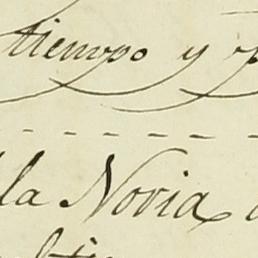 tiempo y
la Novia